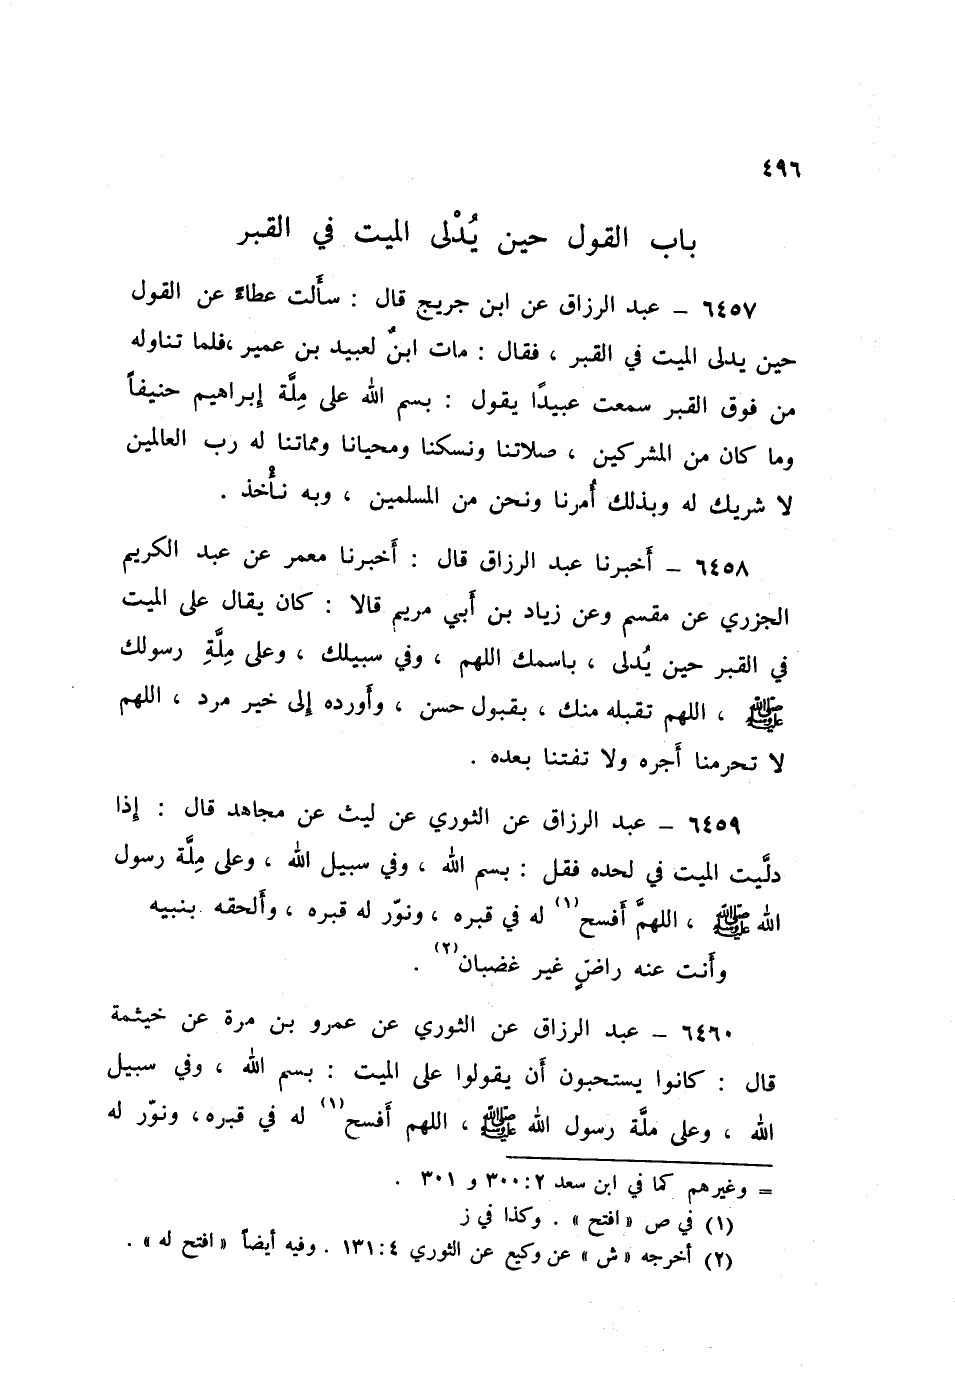 ٤٩٦
باب القول حين يُدْلى الميت في القبر
٦٤٥٧ – عبد الرزاق عن ابن جريج قال : سأَلت عطاءً عن القول
حين يدلى الميت في القبر ، فقال : مات ابنٌ لعبيد بن عمير ،فلما تناوله
من فوق القبر سمعت عبيدًا يقول : بسم الله على مِلَّة إِبراهيم حنيفاً
وما كان من المشركين ، صلاتنا ونسكنا ومحيانا ومماتنا له رب العالمين
لا شريك له وبذلك أُمرنا ونحن من المسلمين ، وبه نأْخذ .
٦٤٥٨ – أَخبرنا عبد الرزاق قال : أَخبرنا معمر عن عبد الكريم
الجزري عن مقسم وعن زياد بن أَبي مريم قالا : كان يقال على الميت
في القبر حين يُدلى ، باسمك اللهم ، وفي سبيلك ، وعلى مِلَّةِ رسولك
ﷺ ، اللهم تقبله منك ، بقبول حسن ، وأَورده إِلى خير مرد ، اللهم
لا تحرمنا أَجره ولا تفتنا بعده .
٦٤٥٩ – عبد الرزاق عن الثوري عن ليث عن مجاهد قال : إِذا
دلَّيت الميت في لحده فقل : بسم الله ، وفي سبيل الله ، وعلى مِلَّة رسول
الله ﷺ ، اللهمَّ أَفسح(١) له في قبره ، ونوّر له قبره ، وأَلحقه بنبيه
وأَنت عنه راضٍ غير غضبان(٢) .
٦٤٦٠ – عبد الرزاق عن الثوري عن عمرو بن مرة عن خيثمة
قال : كانوا يستحبون أَن يقولوا على الميت : بسم الله ، وفي سبيل
الله ، وعلى ملَّة رسول الله ﷺ ، اللهم أَفسح(١) له في قبره، ونوّر له
= وغيرهم كما في ابن سعد ٢:٣٠٠ و ٣٠١ .
(١) في ص « افتح » . وكذا في ز
(٢) أخرجه « ش » عن وكيع عن الثوري ٤:١٣١ . وفيه أيضاً « افتح له » .